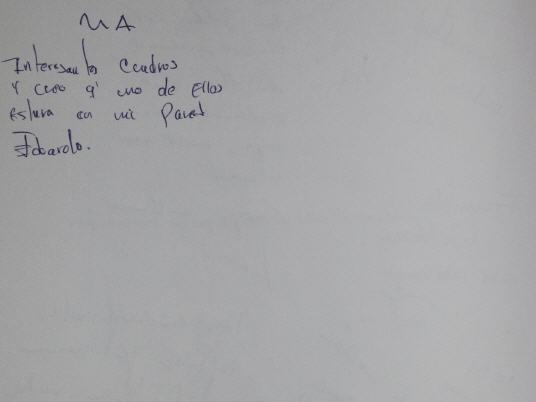 MA
Interesantes Cuadros
Y creo q' uno de Ellos
estara en mi Pared
Eduardo.